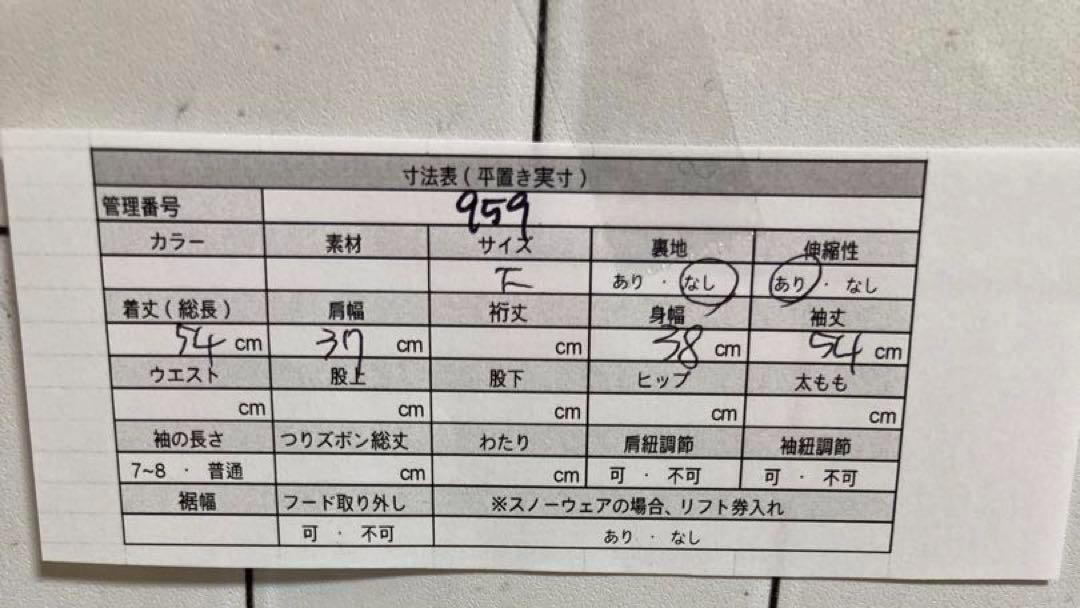 寸法表(平置き実寸)
管理番号 959
カラー 素材 サイズ 裏地 伸縮性
あり ・ なし あり ・ なし
着丈(総長) 肩幅 裄丈 身幅 袖丈
54 cm 37 cm cm 38 cm 54 cm
ウエスト 股上 股下 ヒップ 太もも
cm cm cm cm cm
袖の長さ つりズボン総丈 わたり 肩紐調節 袖紐調節
7~8 ・ 普通 cm cm 可 ・ 不可 可 ・ 不可
裾幅 フード取り外し ※スノーウェアの場合、リフト券入れ
可 ・ 不可 あり ・ なし